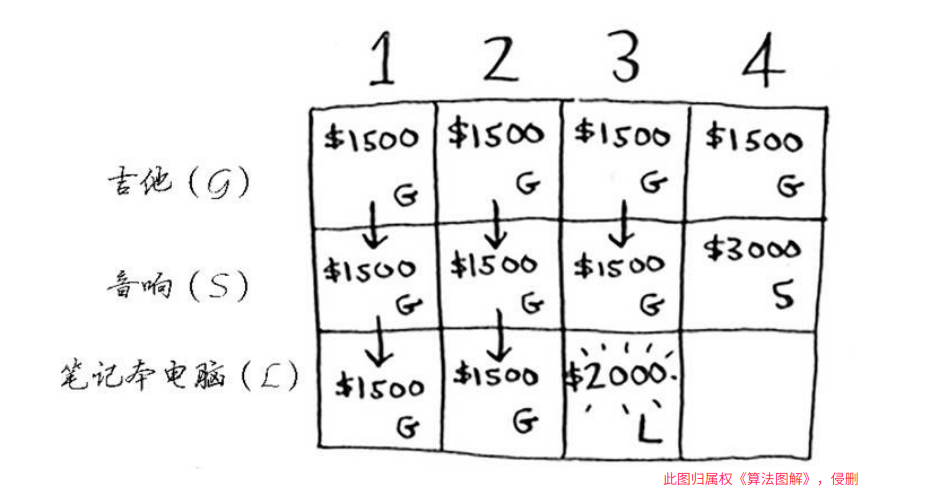 1 2 3 4
吉他(G) $1500 G $1500 G $1500 G $1500 G
音响(S) $1500 G $1500 G $1500 G $3000 S
笔记本电脑(L) $1500 G $1500 G $2000 L
此图归属权《算法图解》，侵删